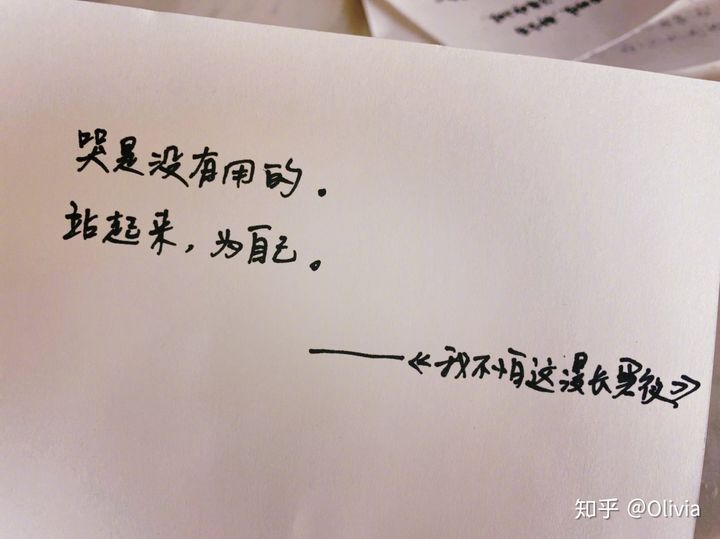 哭是没有用的.
站起来,为自己。
——《我不怕这漫长黑夜》
知乎 @Olivia